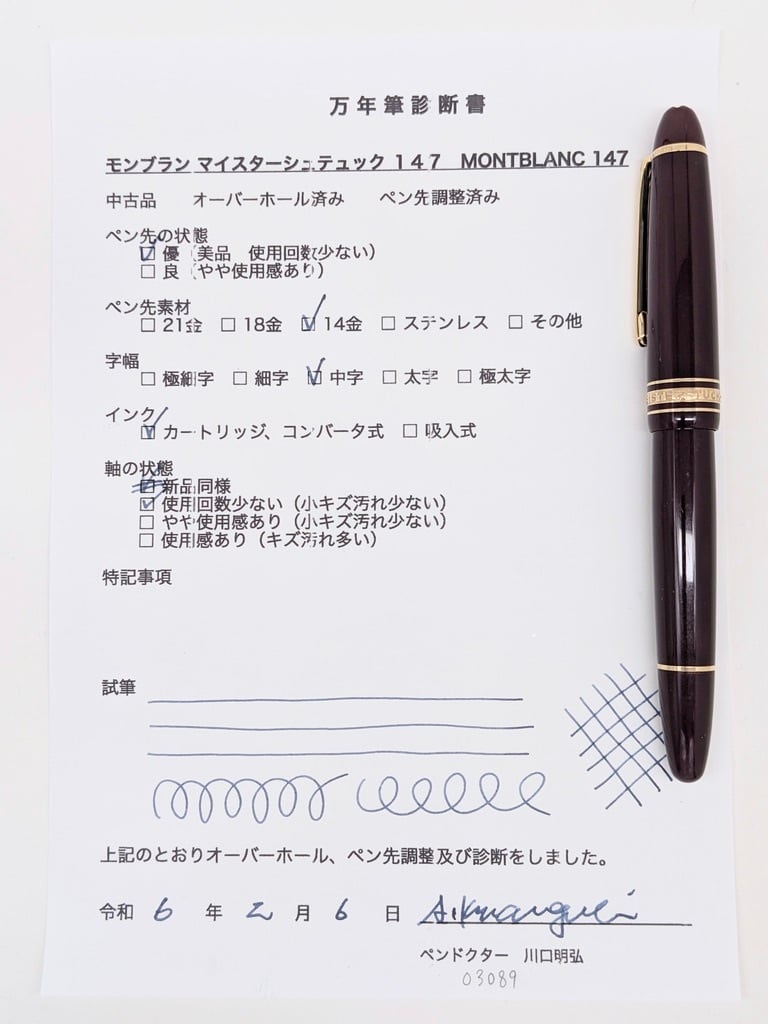 万年筆診断書
モンブラン マイスターシュテュック 147 MONTBLANC 147
中古品 オーバーホール済み ペン先調整済み
ペン先の状態
☑ 優（美品 使用回数少ない）
□ 良（やや使用感あり）
ペン先素材
□ 21金 □ 18金 ☑ 14金 □ ステンレス □ その他
字幅
□ 極細字 □ 細字 ☑ 中字 □ 太字 □ 極太字
インク
☑ カートリッジ、コンバータ式 □ 吸入式
軸の状態
☑ 新品同様
☑ 使用回数少ない（小キズ汚れ少ない）
□ やや使用感あり（小キズ汚れ少ない）
□ 使用感あり（キズ汚れ多い）
特記事項
試筆
上記のとおりオーバーホール、ペン先調整及び診断をしました。
令和 6 年 2 月 6 日
ペンドクター 川口明弘
03089